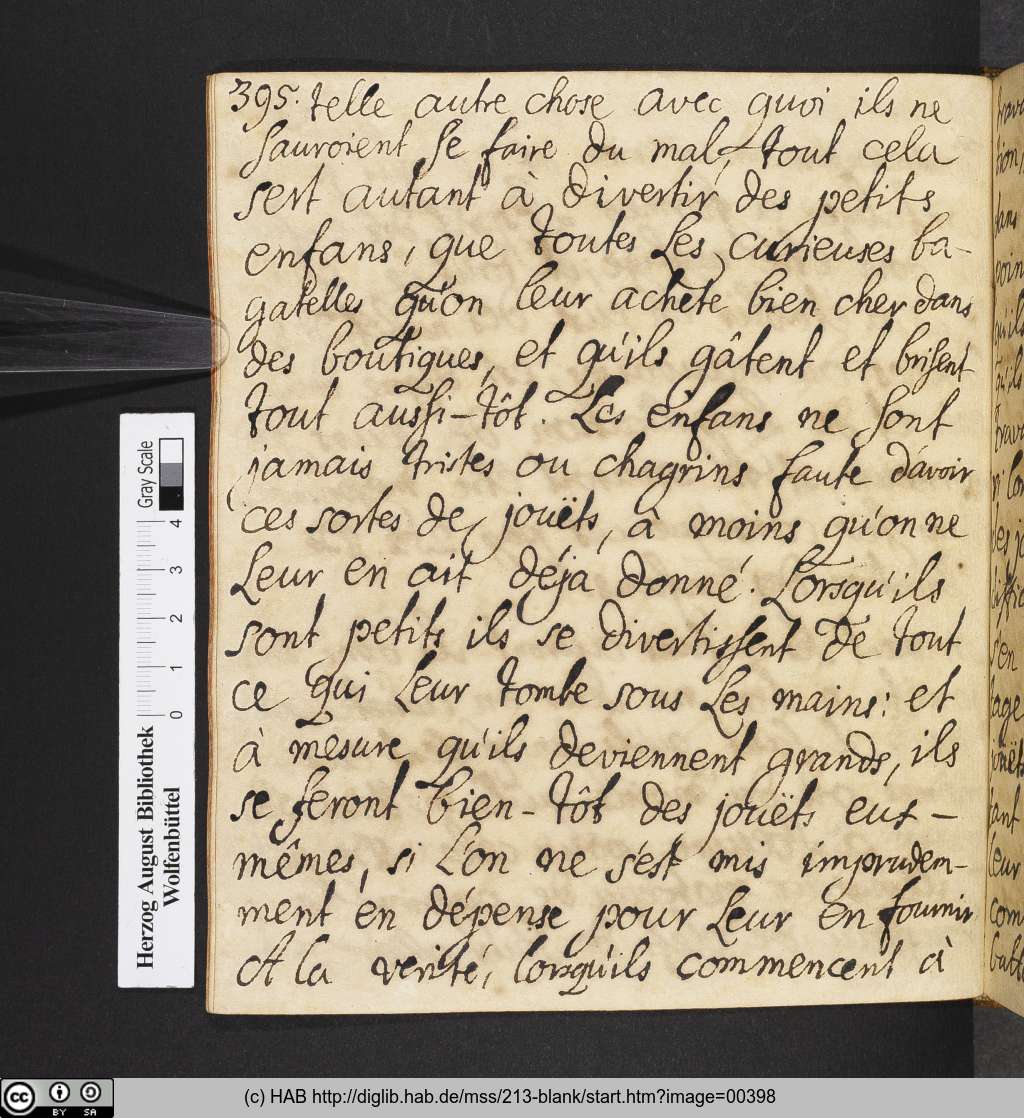 395. telle autre chose avec quoi ils ne
sauroient se faire du mal, tout cela
sert autant à divertir des petits
enfans, que toutes les curieuses ba-
gatelles qu'on leur achete bien cher dans
des boutiques, et qu'ils gâtent et brisent
tout aussi-tôt. Les enfans ne sont
jamais tristes ou chagrins faute d'avoir
ces sortes de jouëts, à moins qu'on ne
Leur en ait déja donné. Lorsqu'ils
sont petits ils se divertissent de tout
ce qui Leur tombe sous Les mains: et
à mesure qu'ils deviennent grands, ils
se feront bien-tôt des jouëts eux-
mêmes, si L'on ne s'est mis imprudem-
ment en dépense pour Leur en fournir
A la verité, lorsqu'ils commencent à
Gray Scale
0 1 2 3 4
Herzog August Bibliothek
Wolfenbüttel
cc BY SA
(c) HAB http://diglib.hab.de/mss/213-blank/start.htm?image=00398